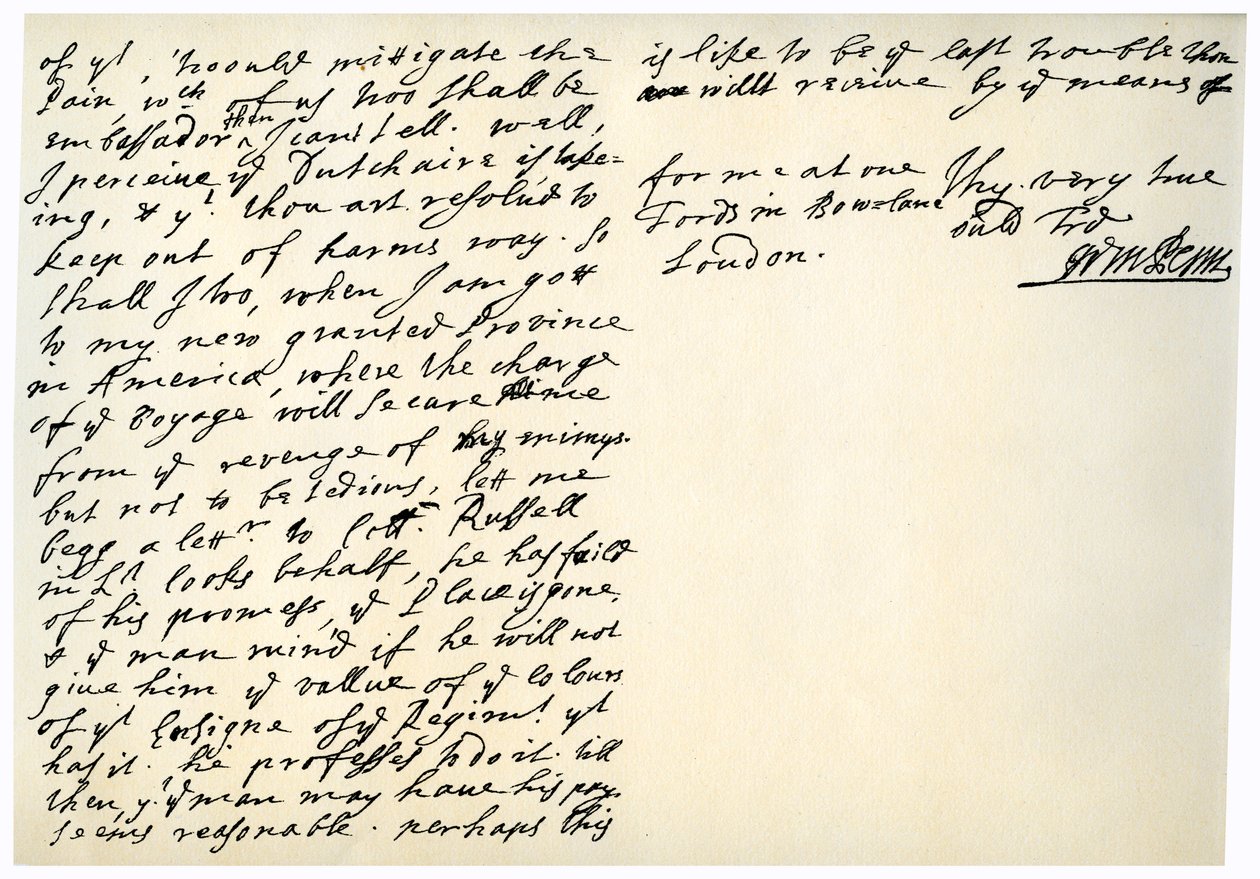 of yt, 'twould mittigate the
Pain, wch of us two shall be
embassador then I can't tell. well,
I perceive ye Dutch aire is take=
ing, & yt. thou art resolud to
keep out of harms way. so
shall I two, when I am gott
to my new granted Province
in America, where the charge
of ye Voyage will secure me
from ye revenge of my enimys.
but not to be tedious, lett me
begg a lettr. to Russell
in Lt. Cooks behalf, he has faild
of his promess, ye Place is gone,
& ye man min'd if he will not
give him ye vallue of ye Colours
of yt Ensigne of ye Regimt. yt
has it. he professes to do it. till
then, yt. ye man may have his pay
seems reasonable. perhaps this
is like to be ye last trouble thou
willt receive by ye means of
for me at one
Fords in Bow=lane
London.
Thy very true
ould Frd
Wm Penn.